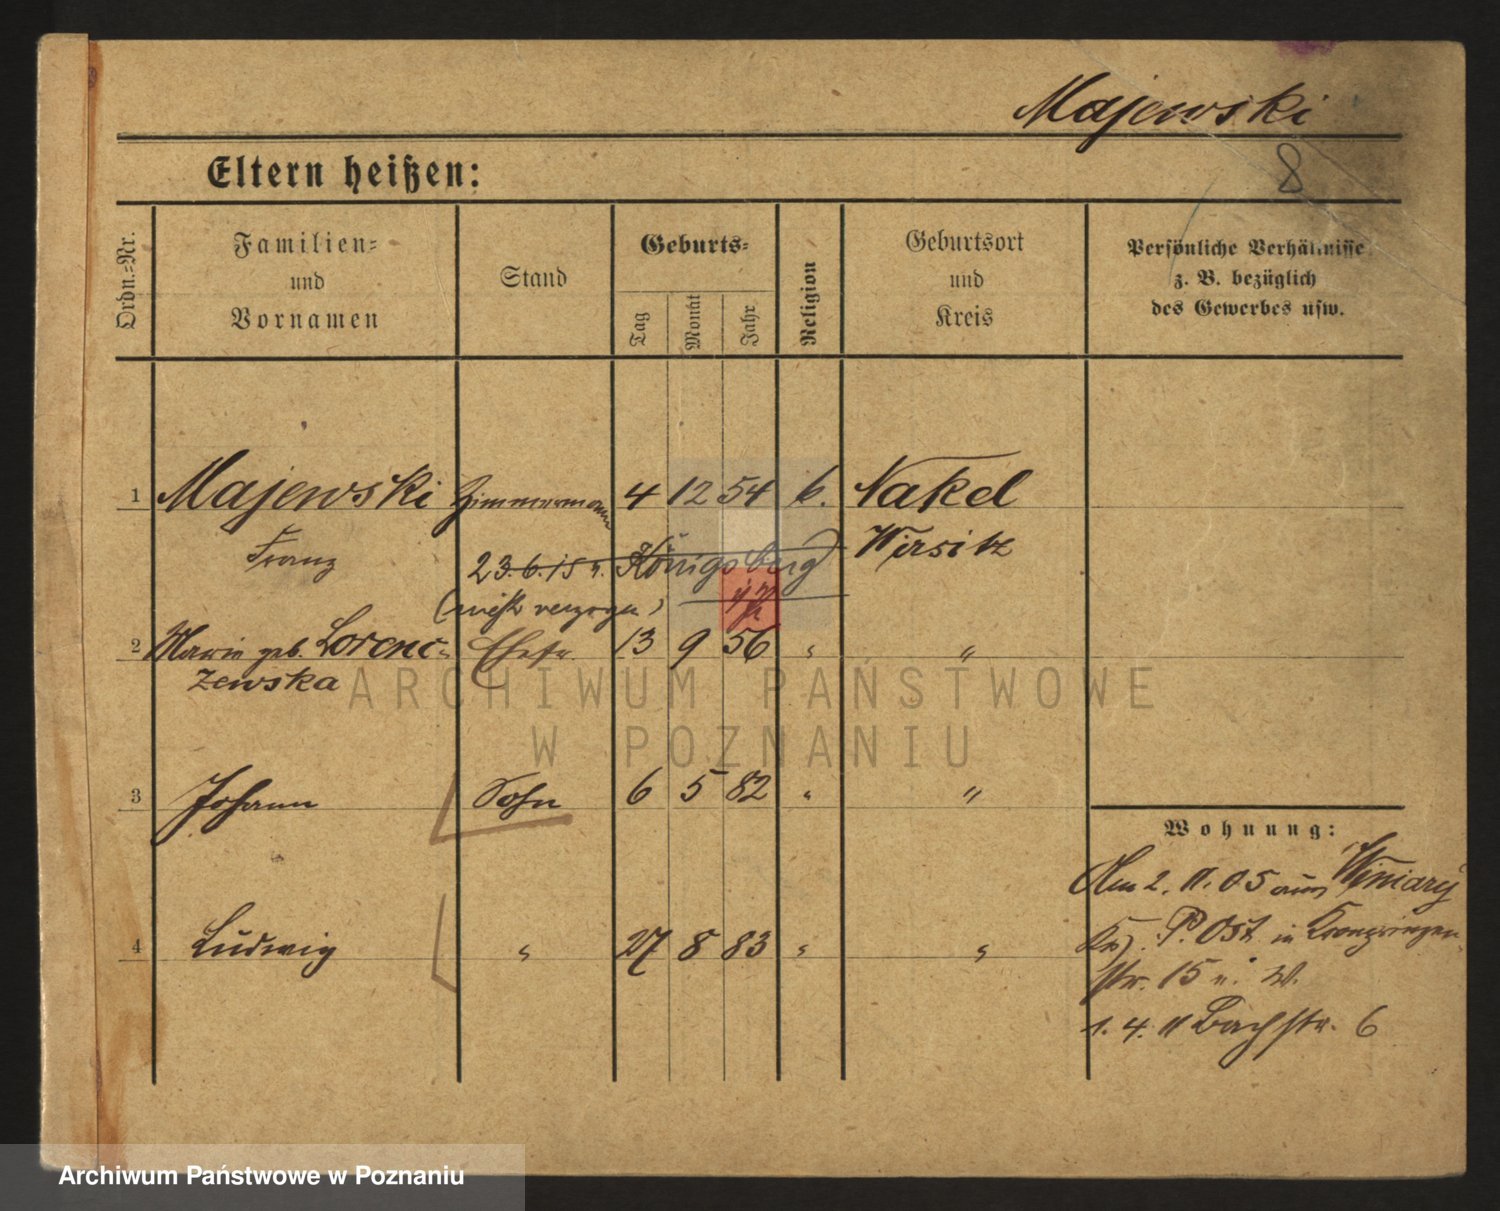 Majewski
8
Eltern heißen:
Ordn.-Nr.
Familien-
und
Vornamen
Stand
Geburts-
Tag
Monat
Jahr
Religion
Geburtsort
und
Kreis
Persönliche Verhältnisse
z. B. bezüglich
des Gewerbes usw.
1 Majewski Zimmermann 4 12 54 k. Nakel
Franz 23.6.15 n. Königsberg Wirsitz
(nicht verzogen)
2 Marie geb. Lorenc- Ehefr. 13 9 56 " "
zewska
ARCHIWUM PAŃSTWOWE
W POZNANIU
3 Johann Sohn 6 5 82 " "
Wohnung:
4 Ludwig " 27 8 83 " "
Am 2. 11. 05 aus Winiary
P. Ost in Kronprinzen
str. 15 n. W.
1. 4. 11 Bachstr. 6
Archiwum Państwowe w Poznaniu